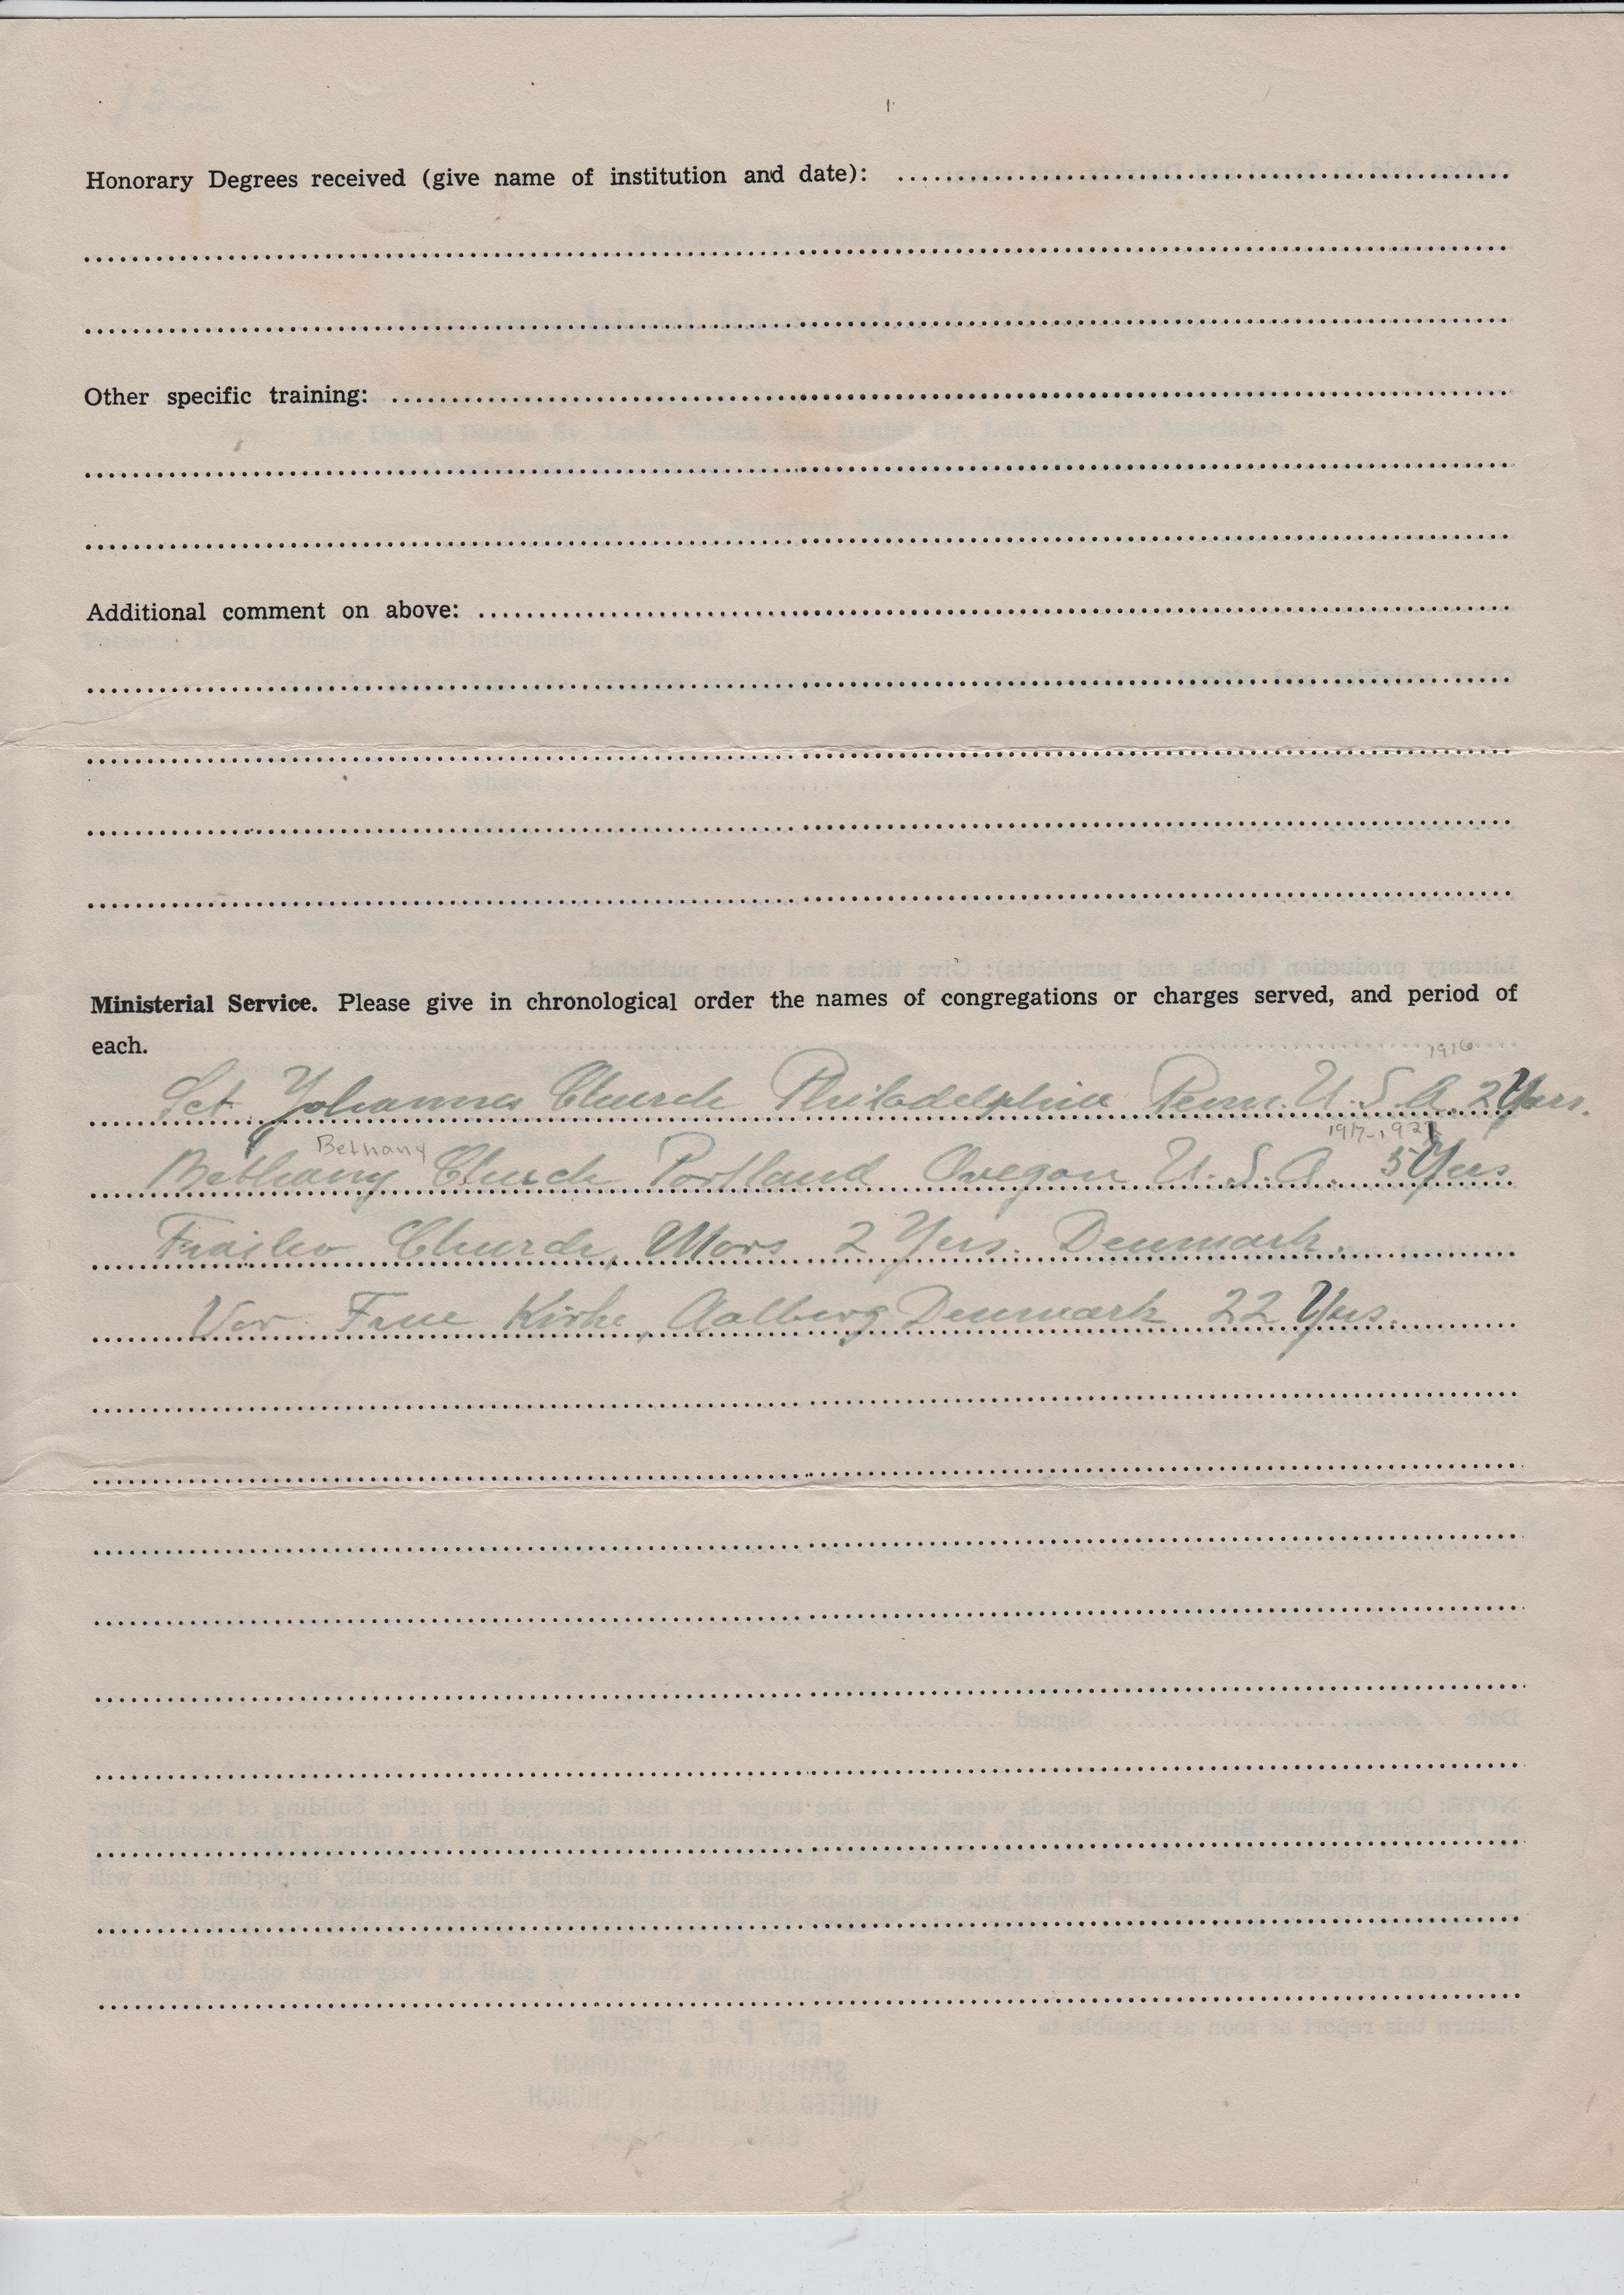 152
Honorary Degrees received (give name of institution and date):
Other specific training:
Additional comment on above:
Ministerial Service. Please give in chronological order the names of congregations or charges served, and period of
each.
1916
Sct. Johannes Church Philadelphia Penn. U.S.A. 2 Yers.
Bethany 1917-1921
Bethany Church Portland Oregon U.S.A. 5 Yers
Church, Mors 2 Yers. Denmark.
Vor Frue Kirke, Aalborg Denmark 22 Yers.